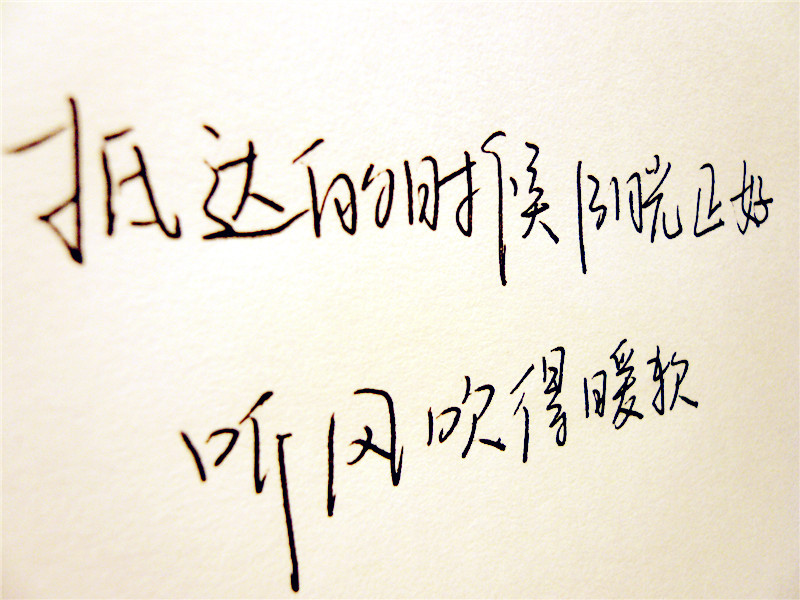 抵达的时候阳晄正好
听风吹得暖软